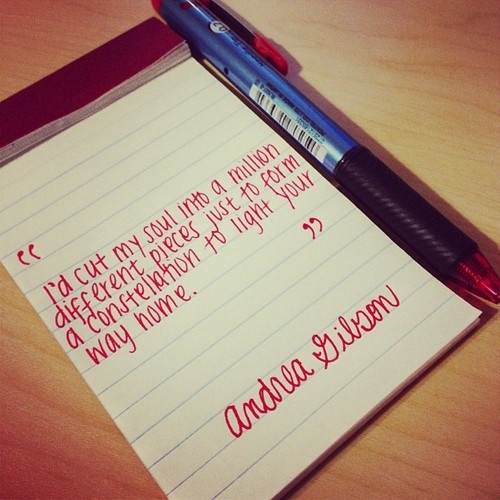 “
I'd cut my soul into a million
different pieces just to form
a constellation to light your
way home.
”
Andrea Gibson